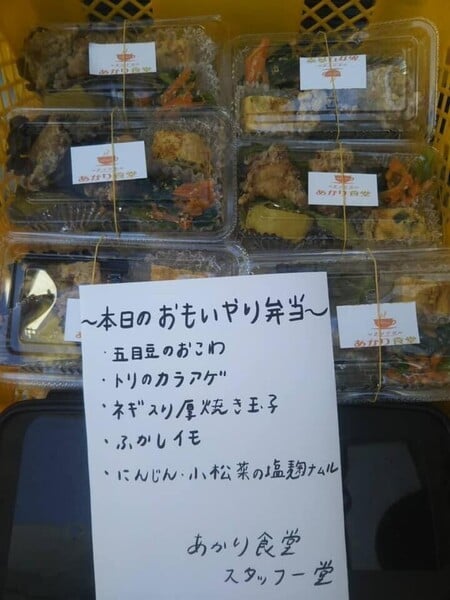 あかり食堂
あかり食堂
あかり食堂
あかり食堂
あかり食堂
～本日のおもいやり弁当～
・五目豆のおこわ
・トリのカラアゲ
・ネギ入り厚焼き玉子
・ふかしイモ
・にんじん・小松菜の塩麹ナムル
あかり食堂
スタッフ一堂